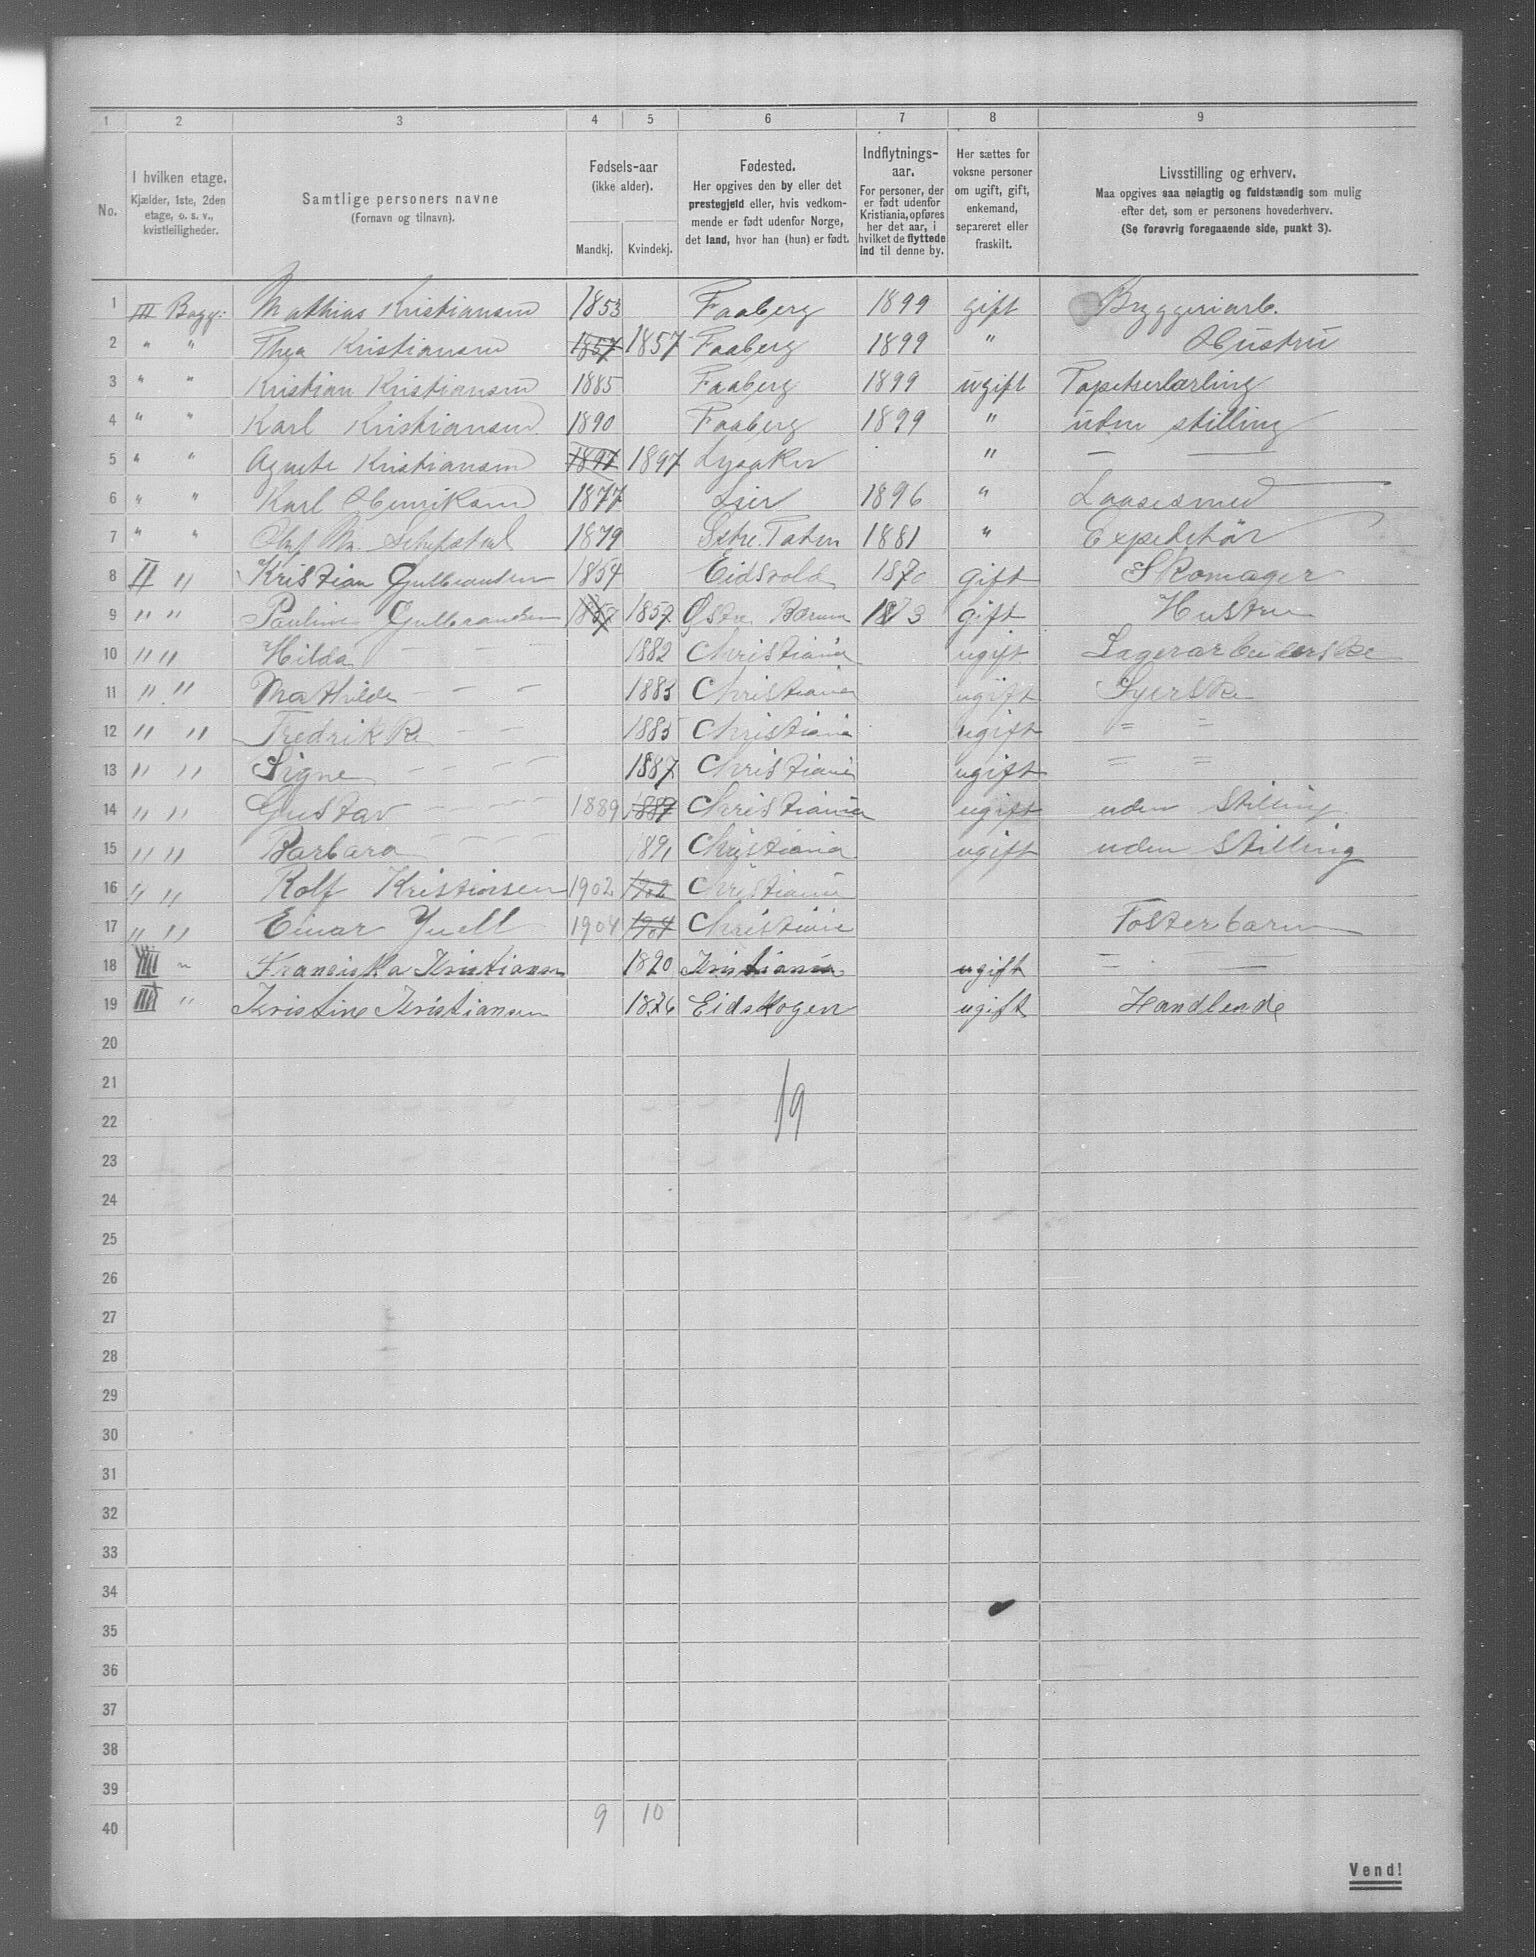 1 2 3 4 5 6 7 8 9
No. I hvilken etage. Kjælder, 1ste, 2den etage, o. s. v., kvistleiligheder. Samtlige personers navne (Fornavn og tilnavn). Fødsels-aar (ikke alder). Mandkj. Kvindekj. Fødested. Her opgives den by eller det prestegjeld eller, hvis vedkommende er født udenfor Norge, det land, hvor han (hun) er født. Indflytnings-aar. For personer, der er født udenfor Kristiania, opføres her det aar, i hvilket de flyttede ind til denne by. Her sættes for voksne personer om ugift, gift, enkemand, separeret eller fraskilt. Livsstilling og erhverv. Maa opgives saa nøiagtig og fuldstændig som mulig efter det, som er personens hovederhverv. (Se forøvrig foregaaende side, punkt 3).
1 III Bagg: Mathias Kristiansen 1853 Faaberg 1899 gift Bryggeriarb.
2 " " Thea Kristiansen 1857 1857 Faaberg 1899 " Hustru
3 " " Kristian Kristiansen 1885 Faaberg 1899 ugift Tapetserlærling
4 " " Karl Kristiansen 1890 Faaberg 1899 " uden stilling
5 " " Agnete Kristiansen 1897 1897 Lysaker " —
6 " " Karl Henriksen 1877 Lier 1896 " Laasesmed
7 " " Olaf M. 1879 Toten 1881 " Expeditør
8 II " Kristian Gulbrandsen 1854 Eidsvold 1870 gift Skomager
9 " " Pauline Gulbrandsen 1857 1857 Østre Bærum 1873 gift Hustru
10 " " Hilda — — — 1882 Christiania ugift Lagerarbeiderske
11 " " Mathilde — — — 1883 Christiania ugift Syerske
12 " " Fredrikke — — 1885 Christiania ugift " "
13 " " Signe — — — — 1887 Christiania ugift " "
14 " " Gustav — — — — 1889 1887 Christiania ugift uden Stilling
15 " " Barbara — — — — 1891 Christiania ugift uden Stilling
16 " " Rolf Kristiansen 1902 1902 Christiania
17 " " Einar Juell 1904 1904 Christiania Fosterbarn
18 IIII " Franciska Kristiansen 1890 Kristiania ugift — —
19 III " Kristine Kristiansen 1876 Eidskogen ugift Handlende
20
21
19
22
23
24
25
26
27
28
29
30
31
32
33
34
35
36
37
38
39
40 9 10
Vend!